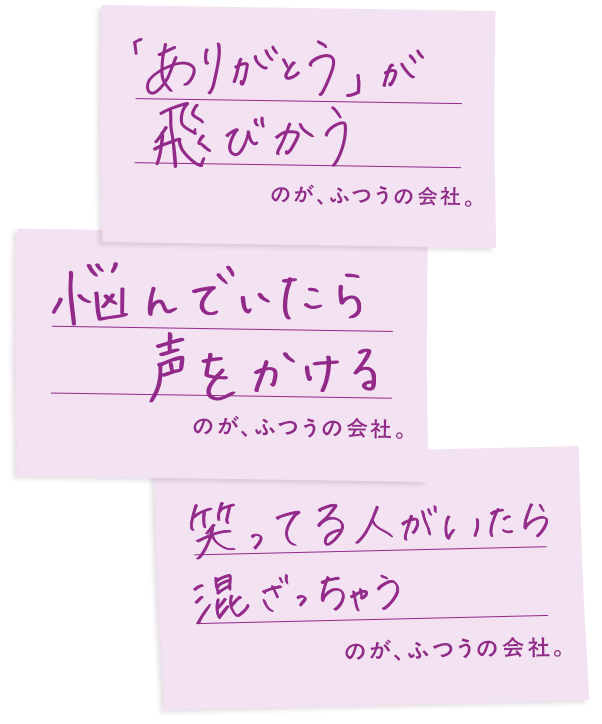 「ありがとう」が
飛びかう
のが、ふつうの会社。
悩んでいたら
声をかける
のが、ふつうの会社。
笑ってる人がいたら
混ざっちゃう
のが、ふつうの会社。